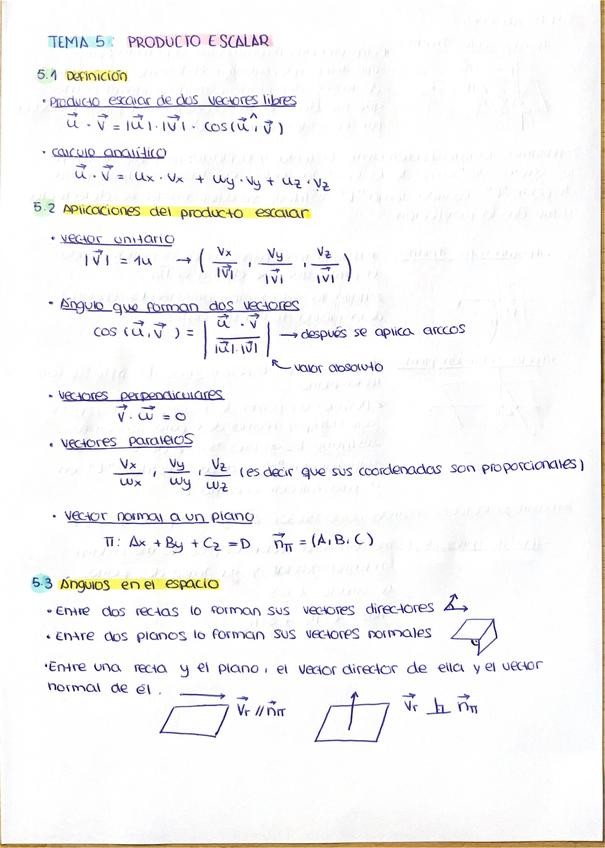 TEMA 5: PRODUCTO ESCALAR
5.1 Definición
· Producto escalar de dos vectores libres
u⃗ · v⃗ = |u⃗| · |v⃗| · cos(u⃗^v⃗)
· Cálculo analítico
u⃗ · v⃗ = ux · vx + uy · vy + uz · vz
5.2 Aplicaciones del producto escalar
· Vector unitario
|v⃗| = 1u → (vx/|v⃗|, vy/|v⃗|, vz/|v⃗|)
· Ángulo que forman dos vectores
cos (u⃗, v⃗) = |u⃗ · v⃗ / |u⃗|·|v⃗|| → después se aplica arccos
valor absoluto
· Vectores perpendiculares
v⃗ · w⃗ = 0
· Vectores paralelos
vx/wx, vy/wy, vz/wz (es decir que sus coordenadas son proporcionales)
· Vector normal a un plano
π: Ax + By + Cz = D, n⃗π = (A, B, C)
5.3 Ángulos en el espacio
· Entre dos rectas lo forman sus vectores directores
· Entre dos planos lo forman sus vectores normales
· Entre una recta y el plano, el vector director de ella y el vector
normal de él.
v⃗r // n⃗π v⃗r ⊥ n⃗π